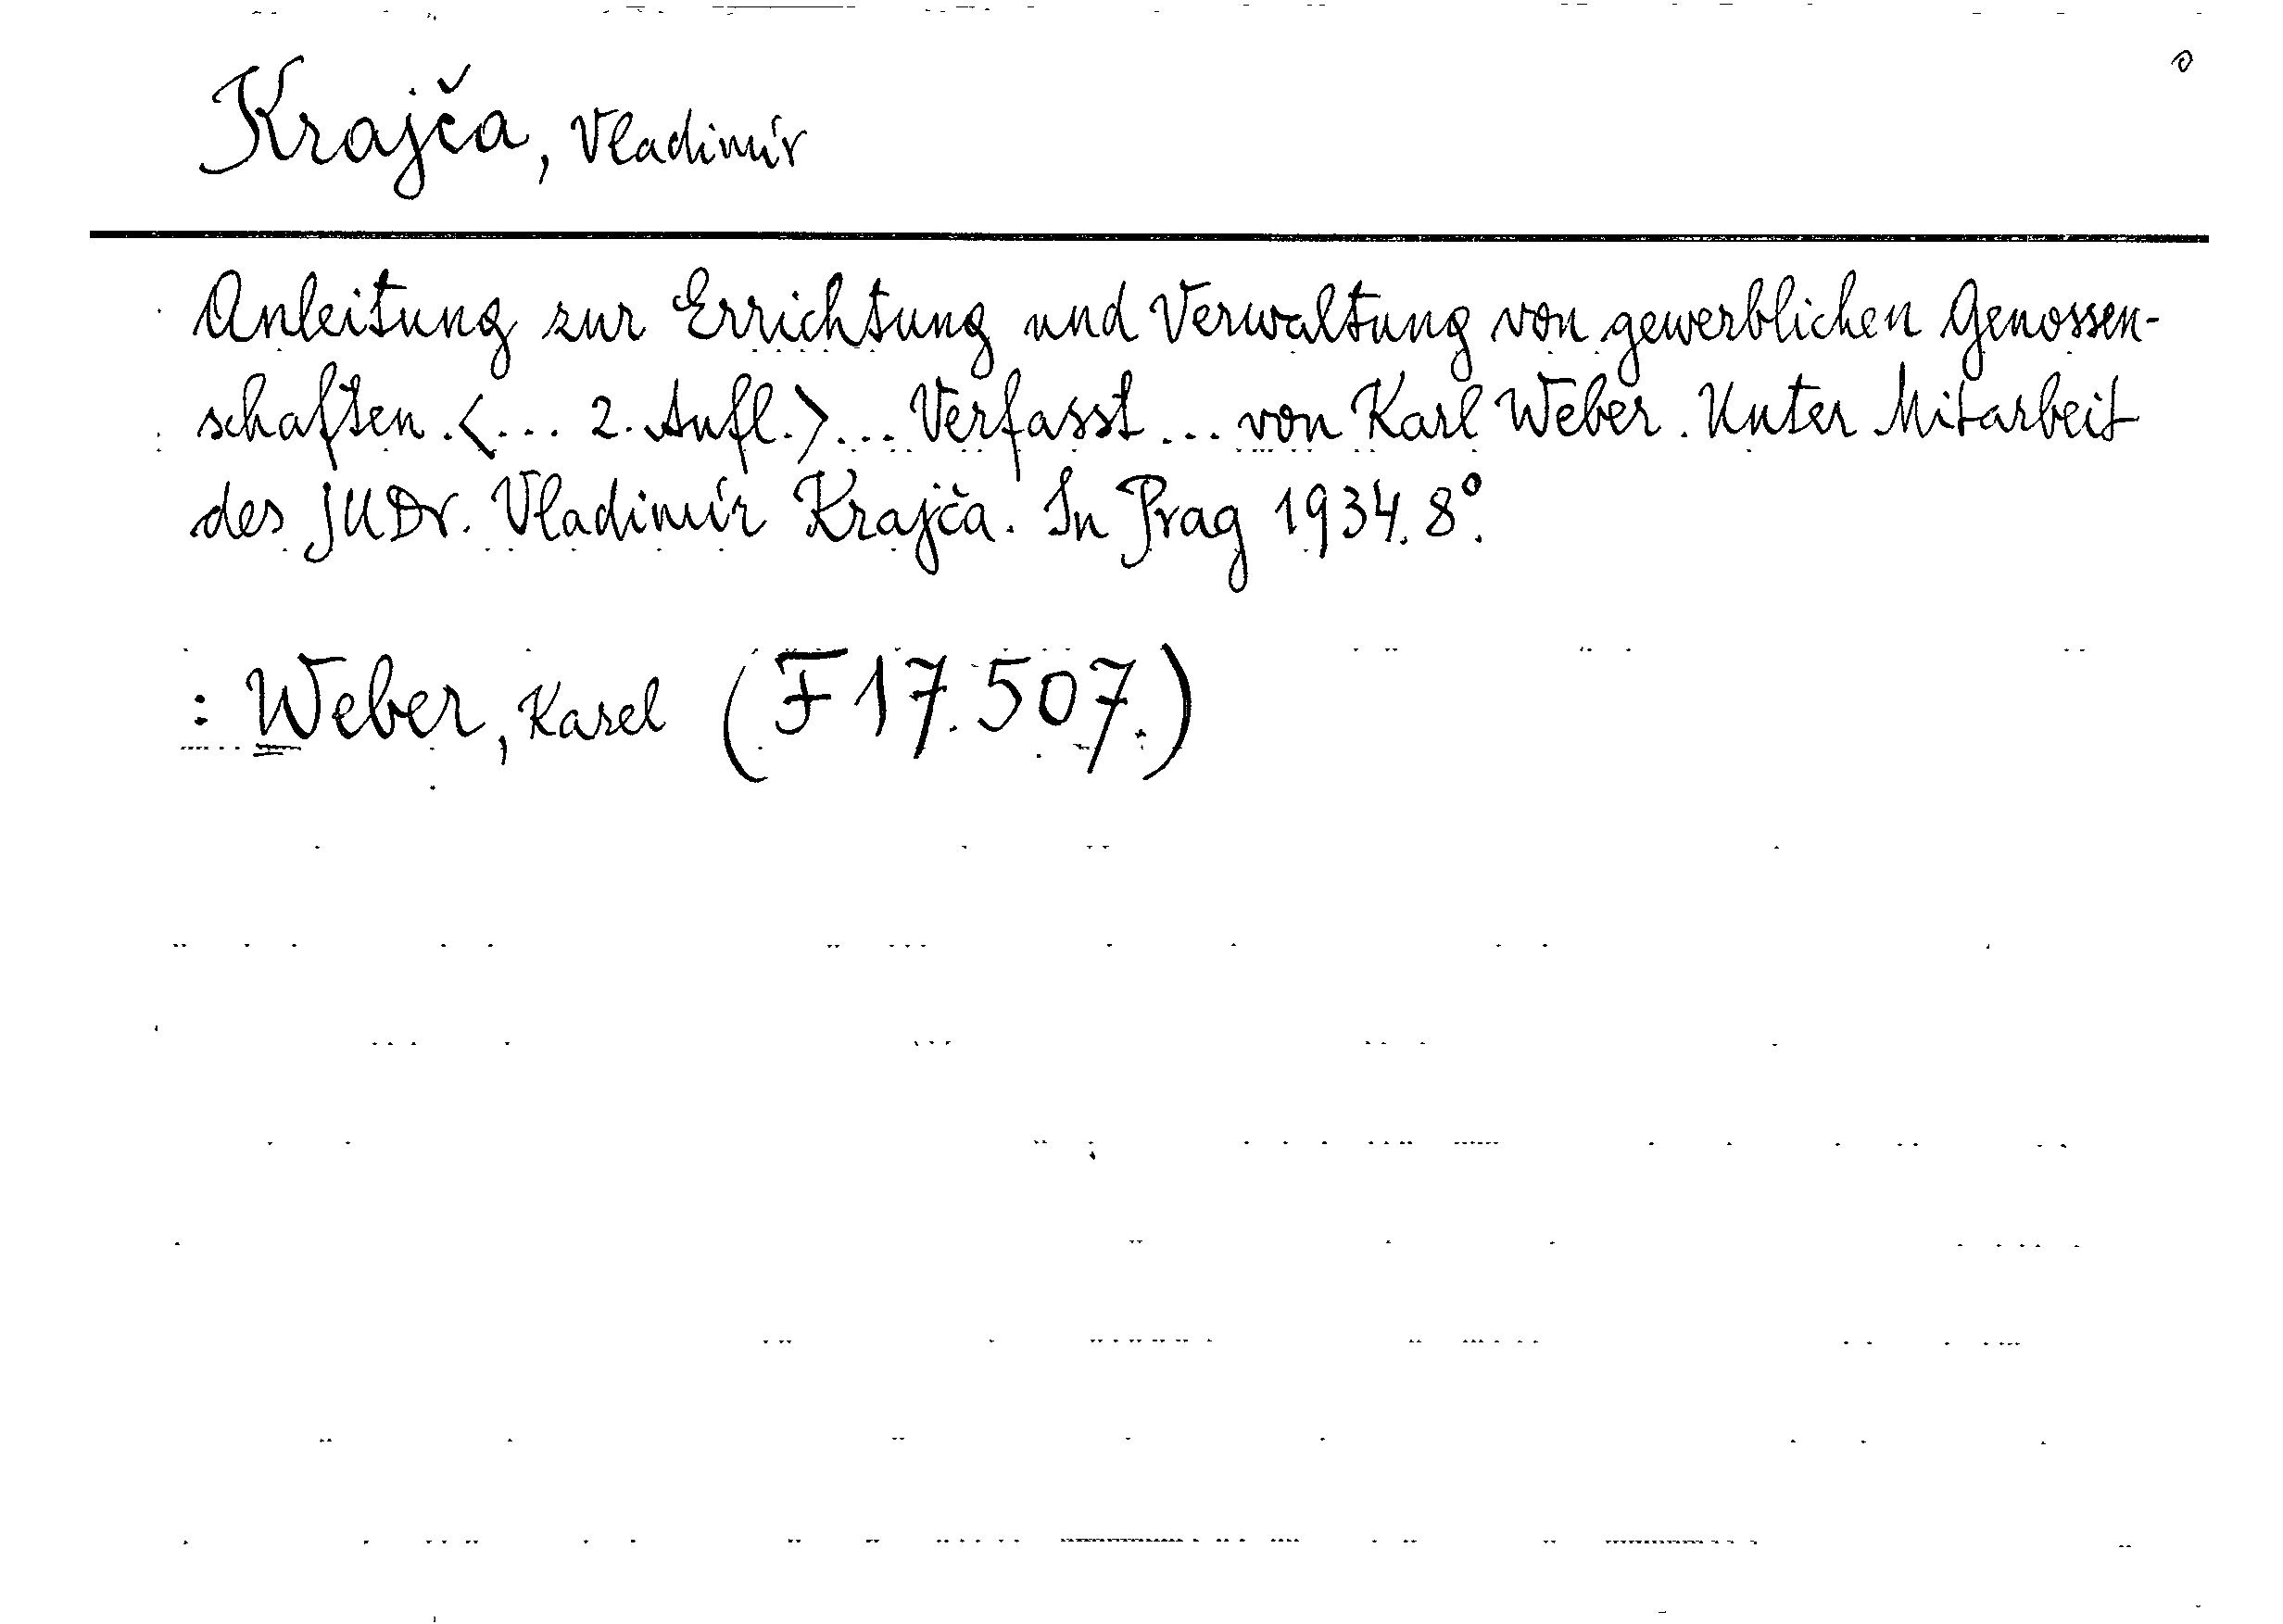 Krajča, Vladimír
Anleitung zur Errichtung und Verwaltung von gewerblichen Genossen-
schaften. <... 2. Aufl.>... Verfasst ... von Karl Weber. Unter Mitarbeit
des JUDr. Vladimír Krajča. In Prag 1934. 8°.
: Weber, Karel (F 17.507.)